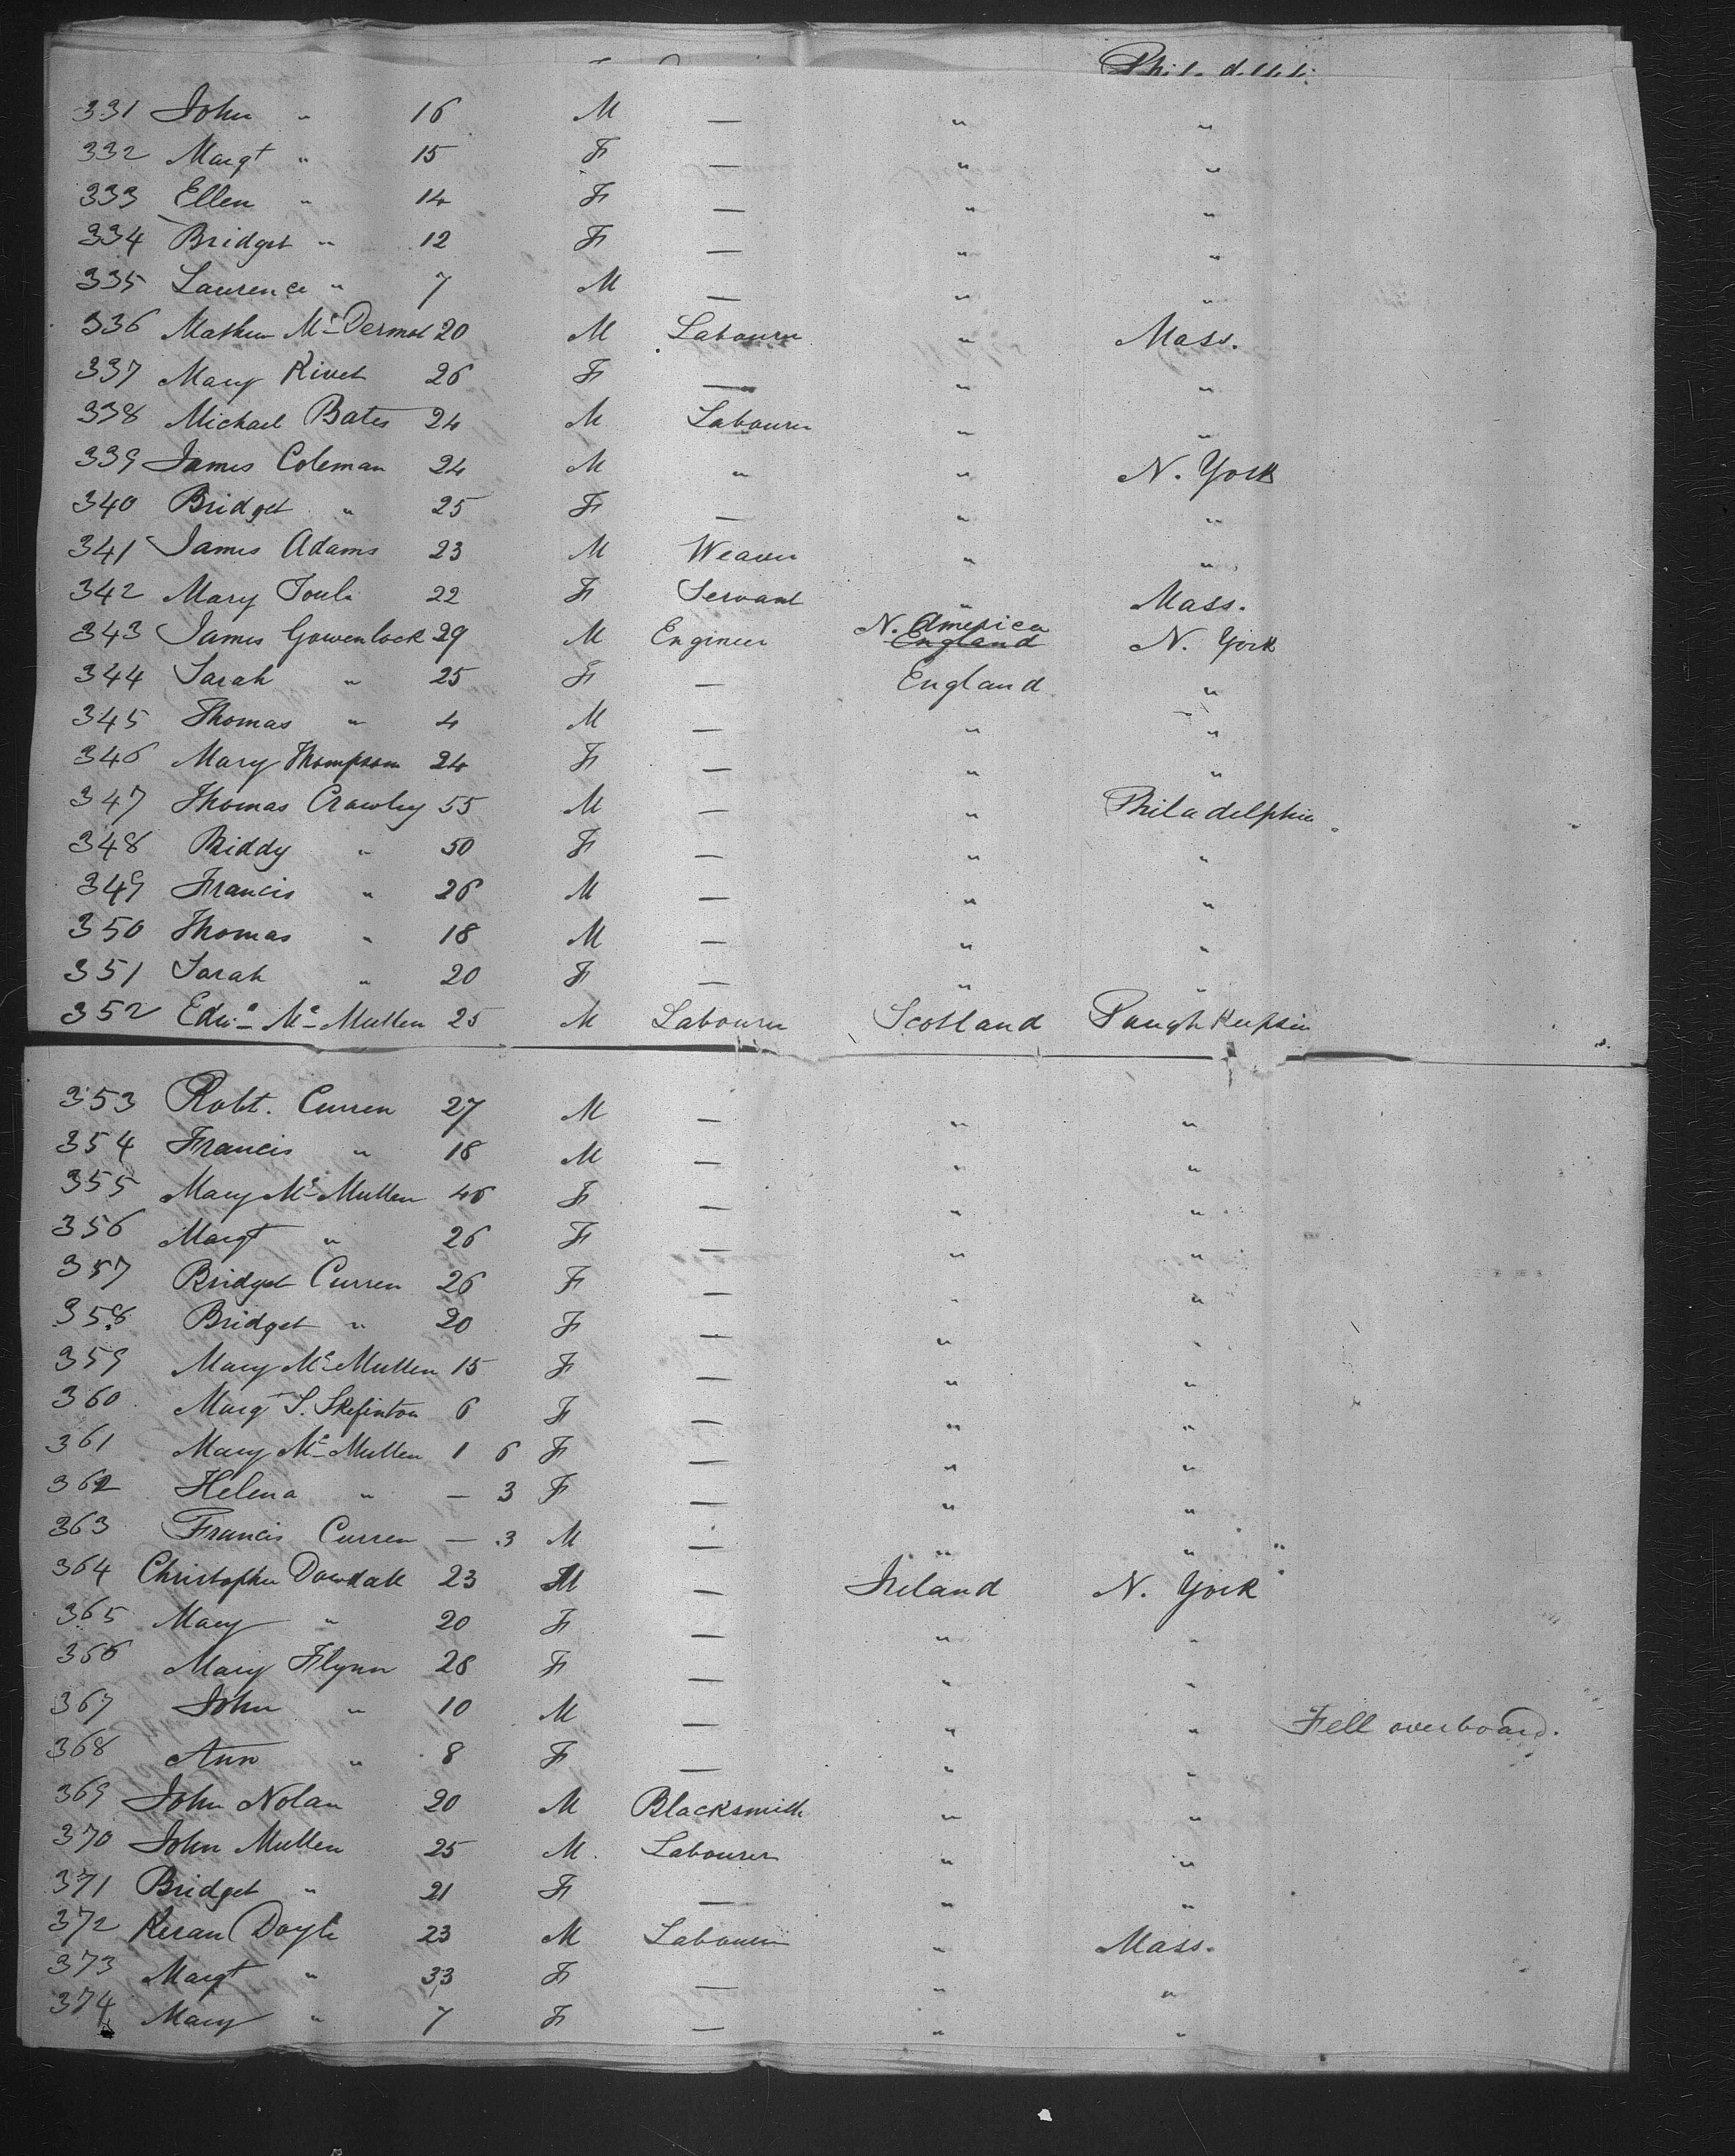 331 John " 16 M — " "
332 Margt " 15 F — " "
333 Ellen " 14 F — " "
334 Bridget " 12 F — " "
335 Laurence " 7 M — " "
336 Mathew McDermot 20 M Labourer " Mass.
337 Mary Rivet 26 F — " "
338 Michael Bates 24 M Labourer " "
339 James Coleman 24 M " " N. York
340 Bridget " 25 F — " "
341 James Adams 23 M Weaver " "
342 Mary 22 F Servant " Mass.
343 James Gowenlock 29 M Engineer N. America England N. York
344 Sarah " 25 F — England "
345 Thomas " 4 M — " "
346 Mary Thompson 24 F — " "
347 Thomas Crawley 55 M — " Philadelphia
348 Biddy " 50 F — " "
349 Francis " 26 M — " "
350 Thomas " 18 M — " "
351 Sarah " 20 F — " "
352 Edwd McMullen 25 M Labourer Scotland Poughkeepsie
353 Robt. Curren 27 M — " "
354 Francis " 18 M — " "
355 Mary McMullen 46 F — " "
356 Margt " 26 F — " "
357 Bridget Curren 26 F — " "
358 Bridget " 20 F — " "
359 Mary McMullen 15 F — " "
360 Margt S. Skefinton 6 F — " "
361 Mary McMullen 1 6 F — " "
362 Helena " — 3 F — " "
363 Francis Curren — 3 M — " "
364 Christopher Dowdall 23 M — Ireland N. York
365 Mary " 20 F — " "
366 Mary Flynn 28 F — " "
367 John " 10 M — " " Fell overboard.
368 Ann " 8 F — " "
369 John Nolan 20 M Blacksmith " "
370 John Mullen 25 M Labourer " "
371 Bridget " 21 F — " "
372 Keran Doyle 23 M Labourer " Mass.
373 Margt " 33 F — " "
374 Mary " 7 F — " "